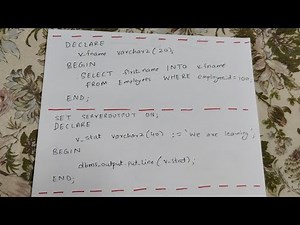 DECLARE
v_fname varchar2 (20);
BEGIN
SELECT first_name INTO v_fname
FROM Employees WHERE employee_id=100;
END;
SET SERVEROUTPUT ON;
DECLARE
v_stat varchar2(40) := 'We are learning';
BEGIN
dbms_output.put_line (v_stat);
END;